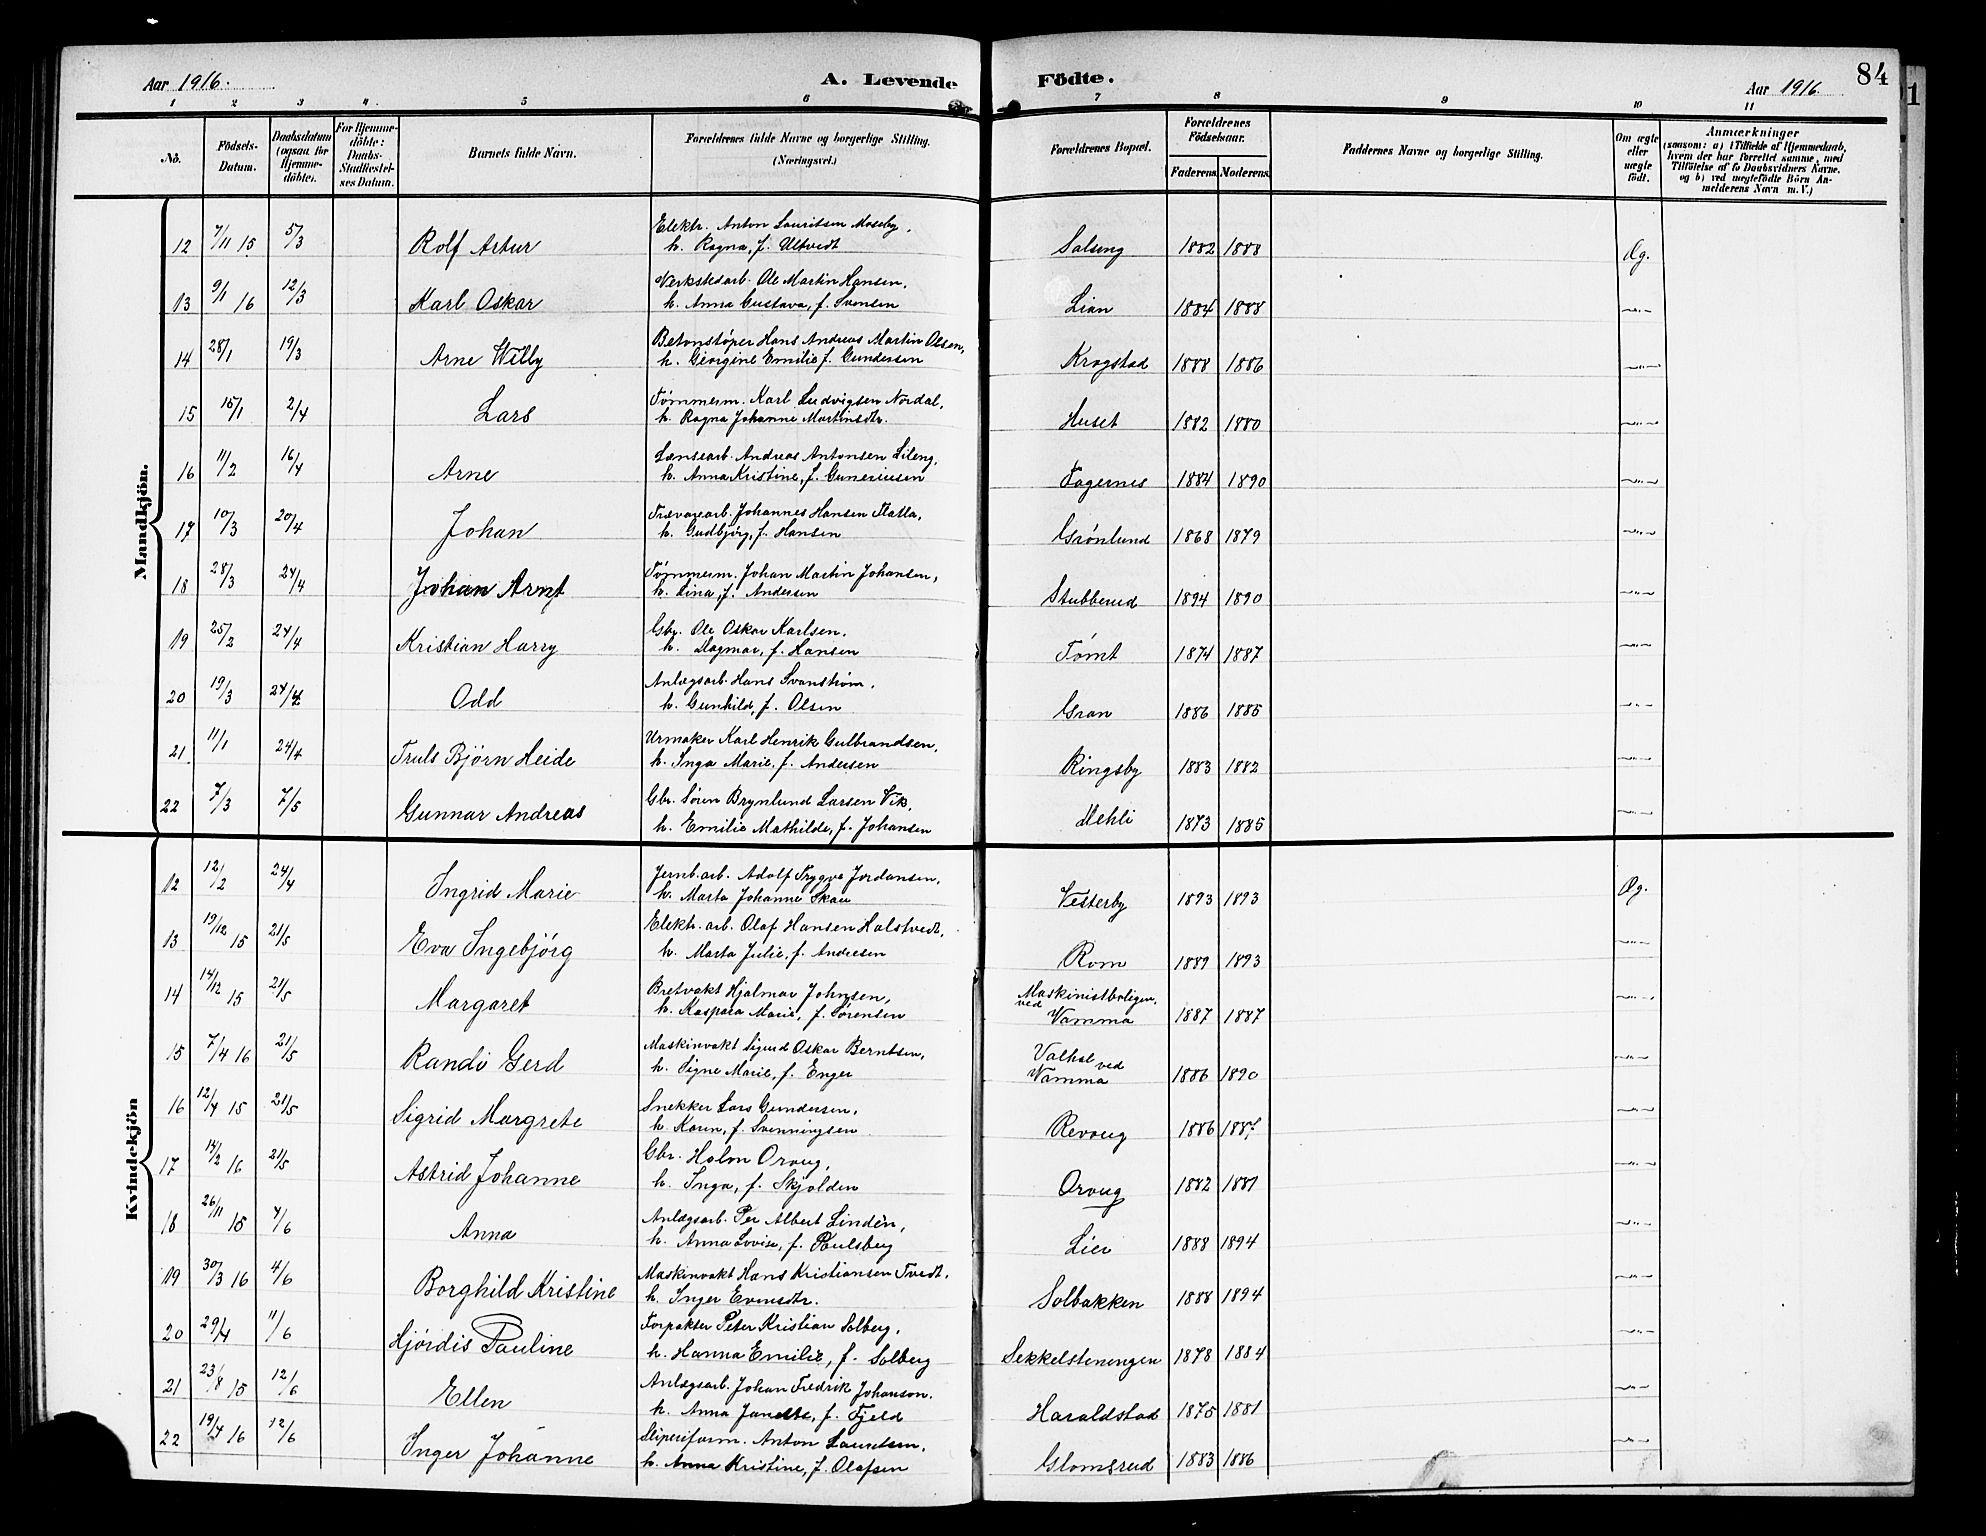 Aar 1916. A. Levende Födte. Aar 1916 84
1 2 3 4 5 6 7 8 9 10 11
No. Födsels-Datum. Daabsdatum (ogsaa for Hjemme-döbte). For Hjemme-döbte: Daabs-Stadfæstel-ses Datum. Barnets fulde Navn. Forældrenes fulde Navne og borgerlige Stilling. (Næringsvei.) Forældrenes Bopæl. Forældrenes Födselsaar. Faderens. Moderens. Faddernes Navne og borgerlige Stilling. Om ægte eller uægte födt. Anmærkninger (saasom: a) i Tilfælde af Hjemmedaab, hvem der har forrettet samme, med Tilföielse af to Daabsvidners Navne, og b) ved uægtefödte Börn An-melderens Navn m. V.)
Mandkjön.
12 7/11 15 5/3 Rolf Artur Elektr. Anton Lauritsen Moseby, h. Ragna, f. Ultvedt Salseng 1882 1888 Æg.
13 9/1 16 12/3 Karl Oskar Verkstedarb. Ole Martin Hansen, h. Anna Gustava, f. Svensen Lian 1884 1888 —"—
14 28/1 19/3 Arne Willy Betonstøper Hans Andreas Martin Olsen, h. Georgine Emilie f. Gundersen Krogstad 1888 1886 —"—
15 16/1 2/4 Lars Tømmerm. Karl Ludvigsen Nordal, h. Ragna Johanne Martinsdtr. Huset 1882 1880 —"—
16 11/2 16/4 Arne Lænsearb. Andreas Antonsen Lileng, h. Anna Kristine, f. Gunerius­en Fagernes 1884 1890 —"—
17 10/3 20/4 Johan Trævarearb. Johannes Hansen Flatla, h. Gudbjørg, f. Hansen Grønlund 1868 1879 —"—
18 28/3 24/4 Johan Arnt Tømmerm. Johan Martin Johansen, h. Lina, f. Andersen Stubberud 1894 1890 —"—
19 25/2 24/4 Kristian Harry Gbr. Ole Oskar Karlsen, h. Dagmar, f. Hansen Tømt 1874 1887 —"—
20 19/3 24/4 Odd Anlægsarb. Hans Svanstrøm, h. Gunhild, f. Olsen Gran 1886 1885 —"—
21 11/1 24/4 Truls Bjørn Heide Urmaker Karl Henrik Gulbrandsen, h. Inga Marie, f. Andersen Ringsby 1883 1882 —"—
22 7/3 7/5 Gunnar Andreas Gbr. Søren Brynlund Larsen Vik, h. Emilie Mathilde, f. Johansen Mehli 1873 1885 —"—
Kvindekjön
12 12/2 24/4 Ingrid Marie Jernb.arb. Adolf Trygve Jordansen, h. Marta Johanne Skau Vesterby 1893 1893 Æg.
13 19/12 15 21/5 Eva Ingebjørg Elektr. arb. Olaf Hansen Halstvedt, h. Marta Julie, f. Andresen Rom 1889 1893 —"—
14 14/12 15 21/5 Margaret Bretvakt Hjalmar Johnsen, h. Kaspara Marie, f. Sørensen Maskinistboligen ved Vamma 1887 1887 —"—
15 7/4 16 21/5 Randi Gerd Maskinvakt Sigurd Oskar Berntsen, h. Signe Marie, f. Enger Valhal ved Vamma 1886 1890 —"—
16 12/4 15 21/5 Sigrid Margrete Snekker Lars Gundersen, h. Karen, f. Svenningsen Revaug 1886 —"—
17 14/2 16 21/5 Astrid Johanne Gbr. Holm Oraug, h. Inga, f. Skjolden Oraug 1882 1881 —"—
18 26/11 15 4/6 Anna Anlægsarb. Per Albert Lindèn, h. Anna Lovise, f. Paulsberg Lier 1888 1894 —"—
19 30/3 16 4/6 Borghild Kristine Maskinvakt Hans Kristiansen Tvedt, h. Inger Evensdtr. Solbakken 1888 1894 —"—
20 29/4 11/6 Hjørdis Pauline Forpakter Peter Kristian Solberg, h. Hanna Emilie, f. Solberg Sekkelsteningen 1878 1884 —"—
21 23/8 15 12/6 Ellen Anlægsarb. Johan Fredrik Johanson, h. Anna Janette, f. Fjeld Haraldstad 1875 1881 —"—
22 19/4 16 12/6 Inger Johanne Sliperiform. Anton Lauritsen, h. Anna Kristine, f. Olafsen Glomsrud 1883 1886 —"—